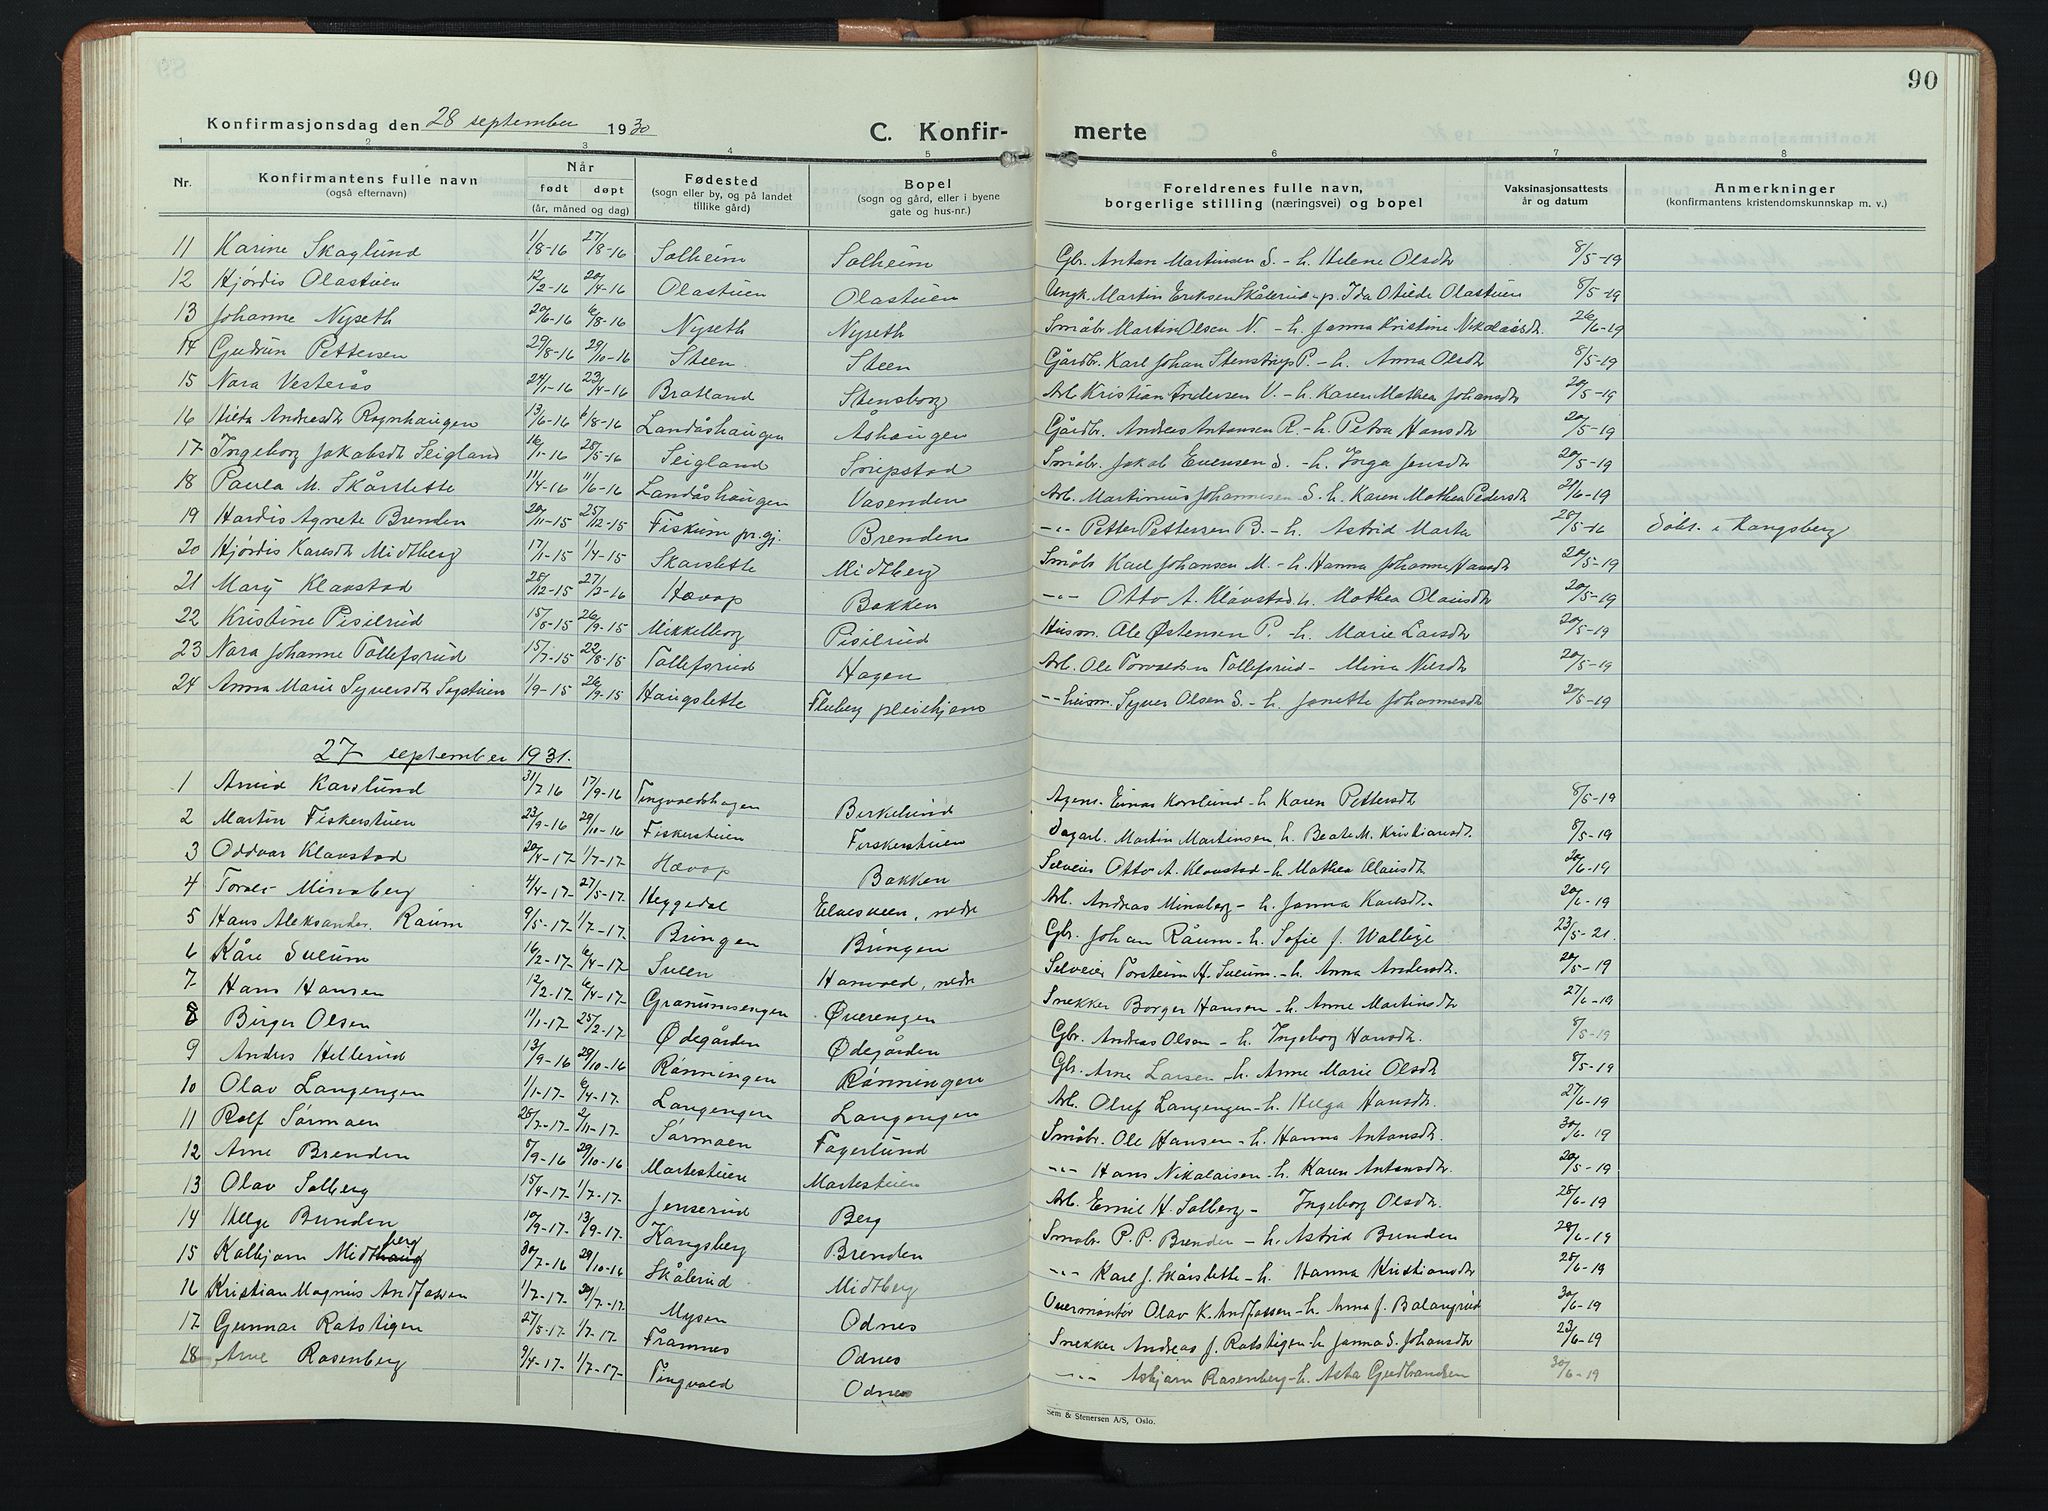 90
Konfirmasjonsdag den 28 september 1930 C. Konfir- merte
1 2 3 4 5 6 7 8
Nr. Konfirmantens fulle navn (også efternavn) Når født døpt (år, måned og dag) Fødested (sogn eller by, og på landet tillike gård) Bopel (sogn og gård, eller i byene gate og hus-nr.) Foreldrenes fulle navn, borgerlige stilling (næringsvei) og bopel Vaksinasjonsattests år og datum Anmerkninger (konfirmantens kristendomskunnskap m. v.)
11 Karine Skaglund 1/8-16 27/8-16 Solheim Solheim Gbr. Anton Martinsen S. - h. Helene Olsdtr 8/5-19
12 Hjørdis Olastuen 12/2-16 20/4-16 Olastuen Olastuen Ungk. Martin Eriksen Skålerud - p. Ida Otilde Olastuen 8/5-19
13 Johanne Nyseth 20/6-16 6/8-16 Nyseth Nyseth Småbr Martin Olsen N. - h. Janna Kristine Nikolaisdtr. 26/6-19
14 Gudrun Pettersen 29/8-16 29/10-16 Steen Steen Gårdbr. Karl Johan Stenstrup P. - h. Anna Olsdtr 8/5-19
15 Nora Vesterås 24/1-16 23/4-16 Bratland Stensborg Arb. Kristian Andersen V. - h. Karen Mathea Johansdtr 20/5-19
16 Hilda Andreasdtr Rognhaugen 13/6-16 6/8-16 Landåshaugen Åshaugen Gårdbr. Andreas Antonsen R. - h. Petra Hansdtr 20/5-19
17 Ingeborg Jakobsdtr Seigland 16/1-16 28/5-16 Seigland Sørpstad Småbr. Jakob Evensen S. - h. Inga Jensdtr 20/5-19
18 Paula M. Skårslette 11/4-16 11/6-16 Landåshaugen Vasenden Arb. Martinius Johannesen S. h. Karen Mathea Pedersdtr 21/6-19
19 Hardis Agnete Brenden 20/11-15 25/12-15 Fiskum pr.gj. Brenden -"- Petter Pettersen B. - h. Astrid Marta 28/5-16 Døbt i Kongsberg
20 Hjørdis Karlsdtr Midtberg 17/1-15 1/4-15 Skarslette Midtberg Småbr Karl Johansen M. - h. Hanna Johanne Hansdtr 20/5-19
21 Mary Klavstad 28/12-15 27/2-16 Hævop Bakken -"- Otto A. Klavstad h. Mathea Olausdtr 20/5-19
22 Kristine Pisilrud 15/8-15 26/9-15 Mikkelborg Pisilrud Husm. Ole Østensen P. - h. Marie Larsdtr 20/5-19
23 Nora Johanne Tollefsrud 15/7-15 22/8-15 Tollefsrud Hagen Arb. Ole Torvaldsen Tollefsrud - Mina Nilsdtr 20/5-19
24 Anna Marie Syversdtr Sagstuen 1/9-15 26/9-15 Haugslette Fluberg pleiehjem -"- husm. Syver Olsen S. - h. Janette Johannesdtr 20/5-19
27 september 1931.
1 Arvid Karslund 31/7 16 17/9-16 Tingvoldshagen Birkelund Agent. Einar Korslund - h. Karen Pettersdtr 8/5-19
2 Martin Fiskerstuen 23/9-16 29/10-16 Fiskerstuen Fiskerstuen Dagarb. Martin Martinsen h. Beate M. Kristiansdtr. 8/5-19
3 Oddvar Klavstad 20/4-17- 1/7-17- Hævop Bakken Selveier Otto A. Klavstad - h. Mathea Olausdtr 20/6-19
4 Torleif Minaberg 4/4-17- 27/5-17. Heggedal Elvesveen, nedre Arb. Andreas Minaberg - h. Janna Karlsdtr. 20/6-19
5 Hans Aleksander Raum 9/5-17- 1/7-17- Bungen Bungen Gbr. Johan Råum - h. Sofie f. Wallye 23/5-21.
6 Kåre Sveum 16/2-17- 6/4-17. Sveen Hanvold, nedre Selveier Torstein H. Sveum. - h. Anna Andersdtr. 20/5-19
7 Hans Hansen 12/2-17- 6/4-17- Granumsengen Øverengen Snekker Borger Hansen - h. Anne Martinsdtr 27/6-19
8 Birger Olsen 11/1-17- 25/2-17. Ødegården Ødegården Gbr. Andreas Olsen - h. Ingeborg Hansdtr 8/5-19
9 Anders Hellerud 13/9-16 29/10-16 Rønningen Rønningen Gbr. Arne Larsen - h. Anne Marie Olsdtr 8/5-19
10 Olav Langengen 1/1-17- 6/4-17- Langengen Langengen Arb. Oluf Langengen - h. Helga Hansdtr. 27/6-19
11 Rolf Sørmoen 26/7-17- 2/11-17- Sørmoen Fagerlund Småbr. Ole Hansen - h. Hanna Antonsdtr. 30/6-19
12 Arne Brenden 5/9-16 29/10-16 Martestuen Martestuen -"- Hans Nikolaisen - h. Karen Antonsdtr. 20/5-19
13 Olav Solberg 15/4-17- 1/7-17- Jenserud Berg Arb. Emil H. Solberg - Ingeborg Olsdtr. 28/6-19
14 Helge Brenden 10/9-17- 13/9-17. Kongsberg Brenden Småbr. P. P. Brenden - h. Astrid Brenden 28/6-19
15 Kolbjørn Midthaug berg 30/7-16 29/10-16 Skålerud Midtberg -"- Karl J. Skårslette - h. Hanna Kristiansdtr 25/6-19
16 Kristian Magnus Andfossen 1/7-17- 29/7-17- Mysen Odnes Overmontør Olav K. Andfossen - h. Anna f. Balangrud 30/6-19
17 Gunnar Rotstigen 27/5-17- 1/7-17- Framnes Odnes Snekker Andreas J. Rotstigen - h Janna S. Johansdtr 23/6-19
18 Arne Rosenberg 9/4-17- 1/7-17- Tingvold Odnes -"- Asbjørn Rosenberg - h. Asta Gudbrandsen 30/6-19
Sem & Stenersen A/S, Oslo.